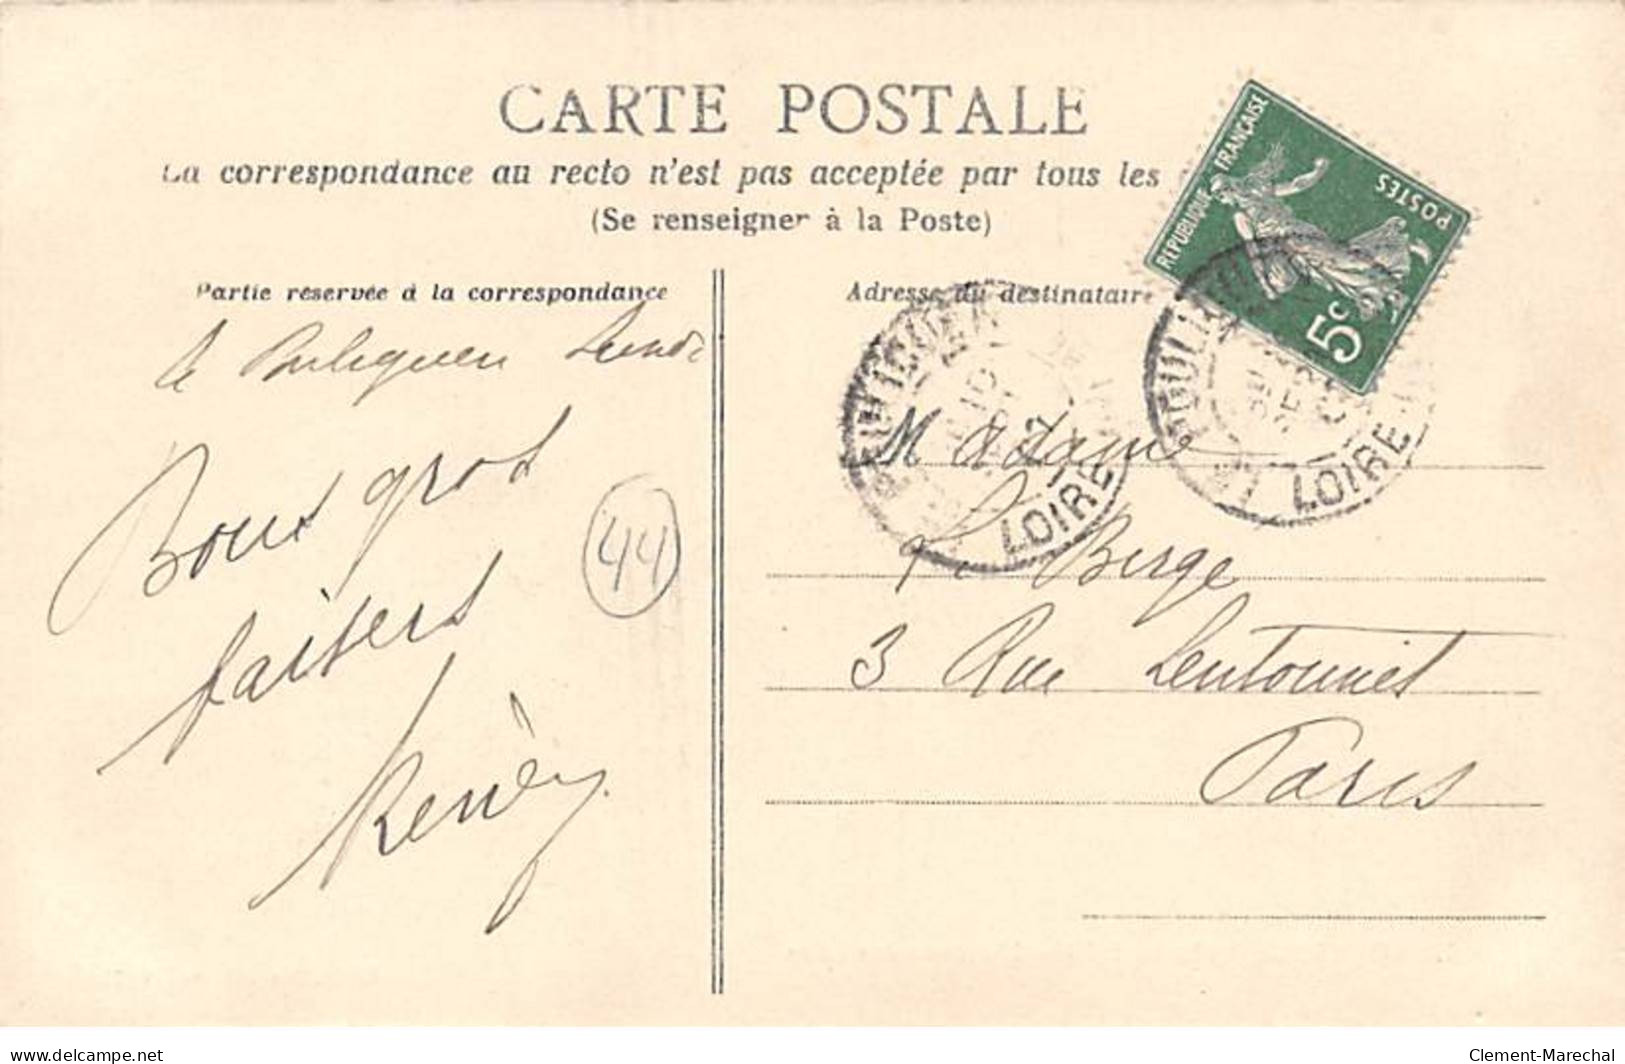 CARTE POSTALE
La correspondance au recto n'est pas acceptée par tous les
(Se renseigner à la Poste)
RÉPUBLIQUE FRANÇAISE
POSTES
5c
Partie réservée à la correspondance
Adresse du destinataire
Le Pouliguen Lundi
Bons gros
baisers
LOIRE
LOIRE
44
Madame
Berge
3 Rue
Paris
Clement-Marechal
www.delcampe.net